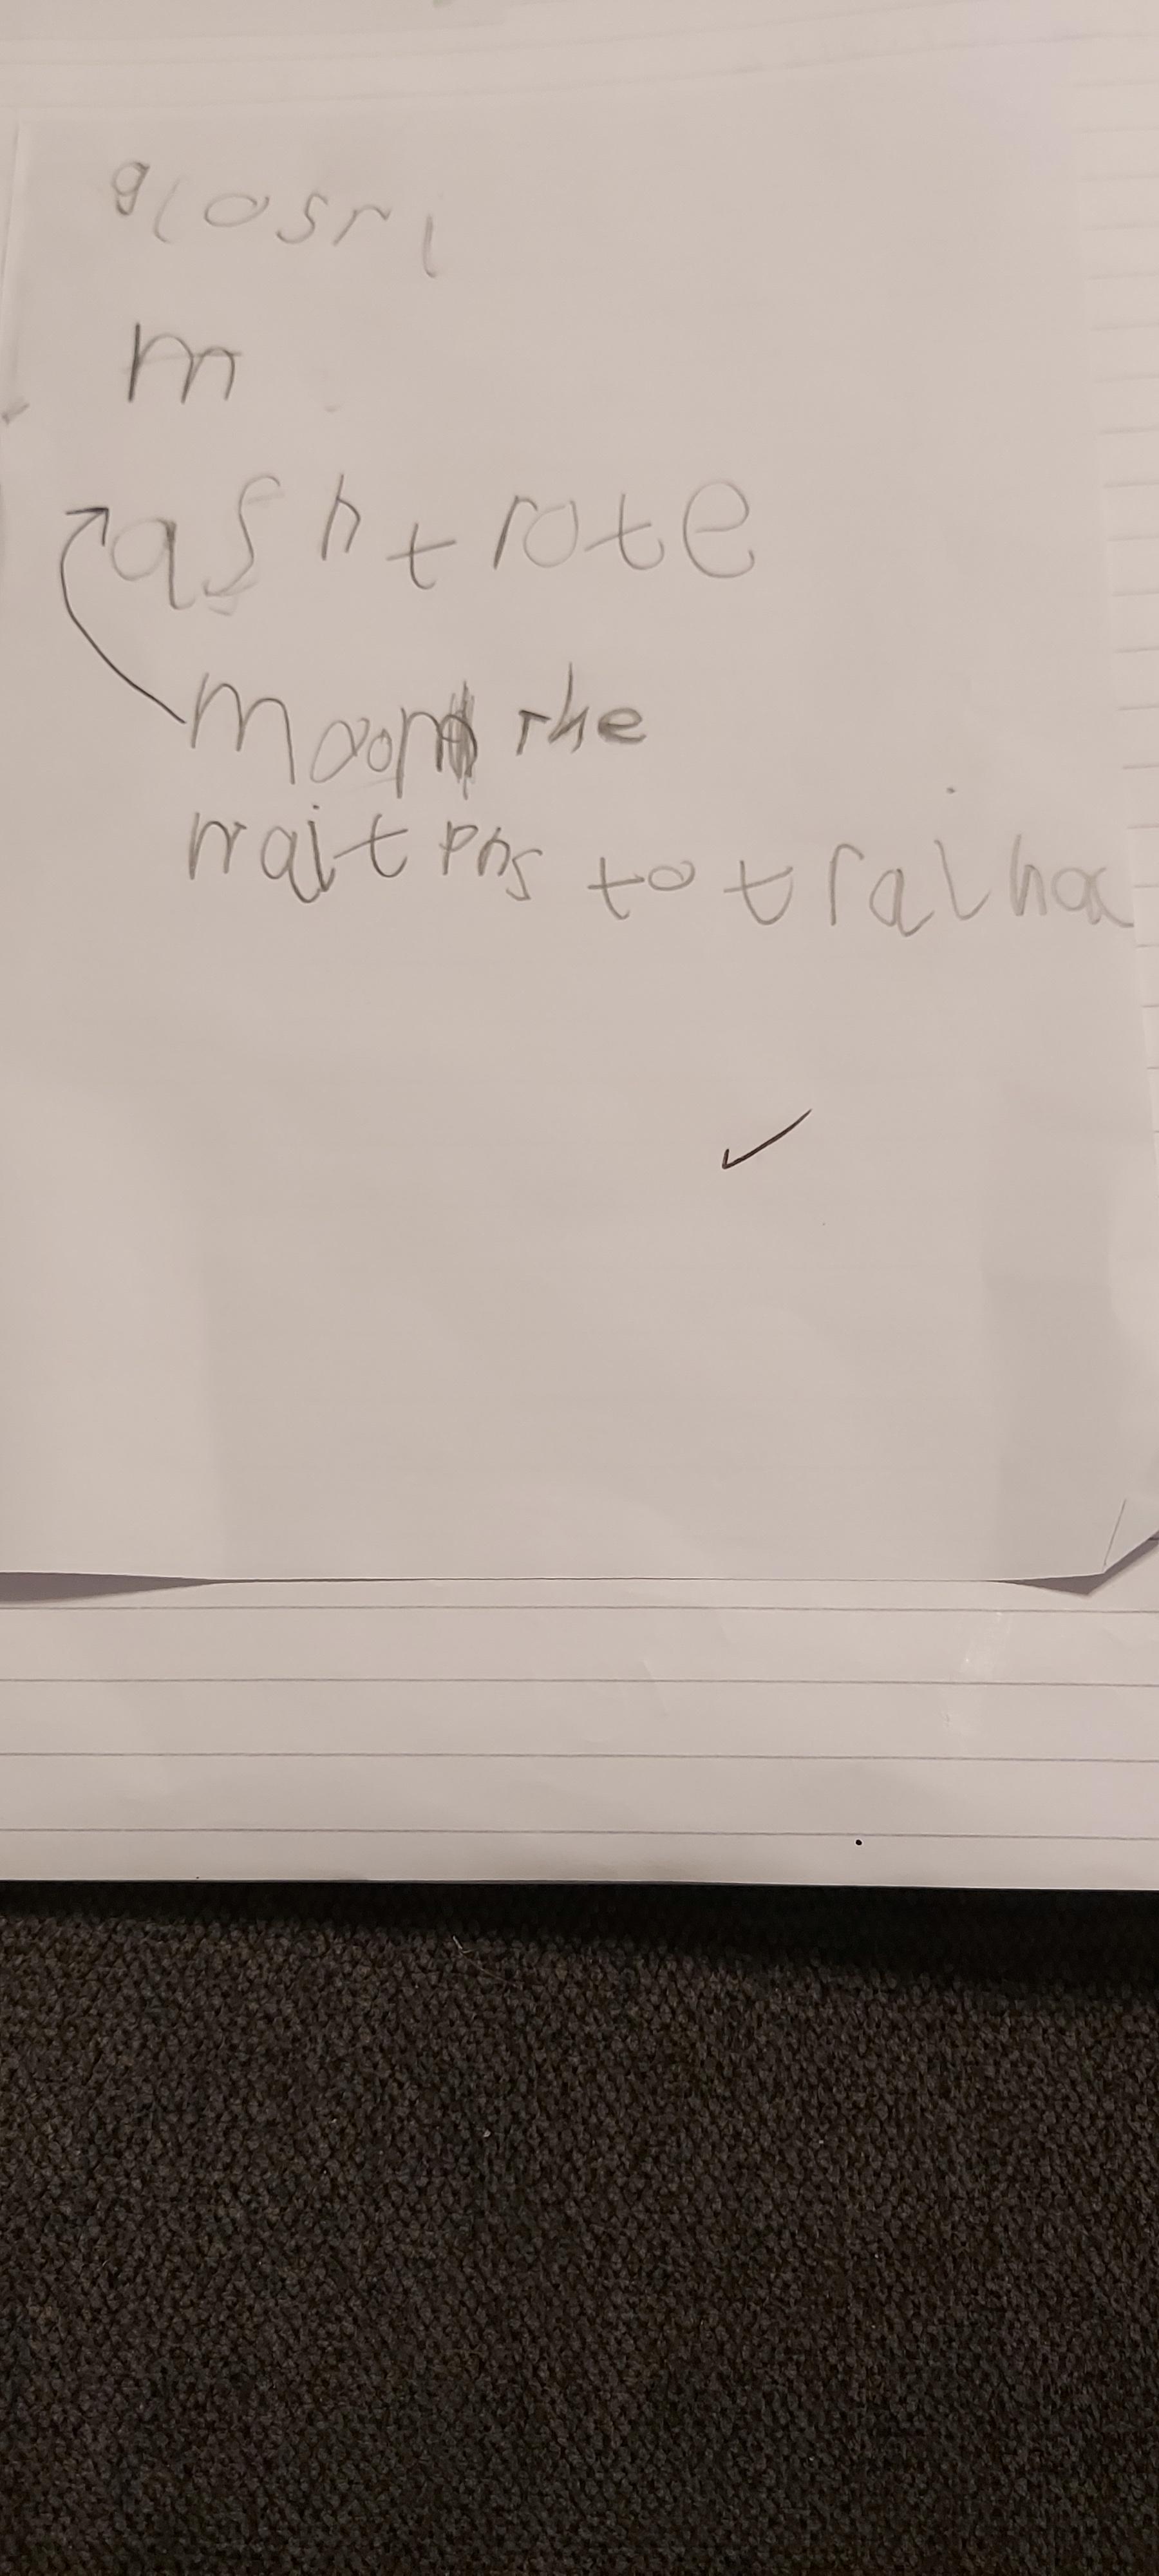 glosri
m
ash trote
moon the
mait pns to traiha